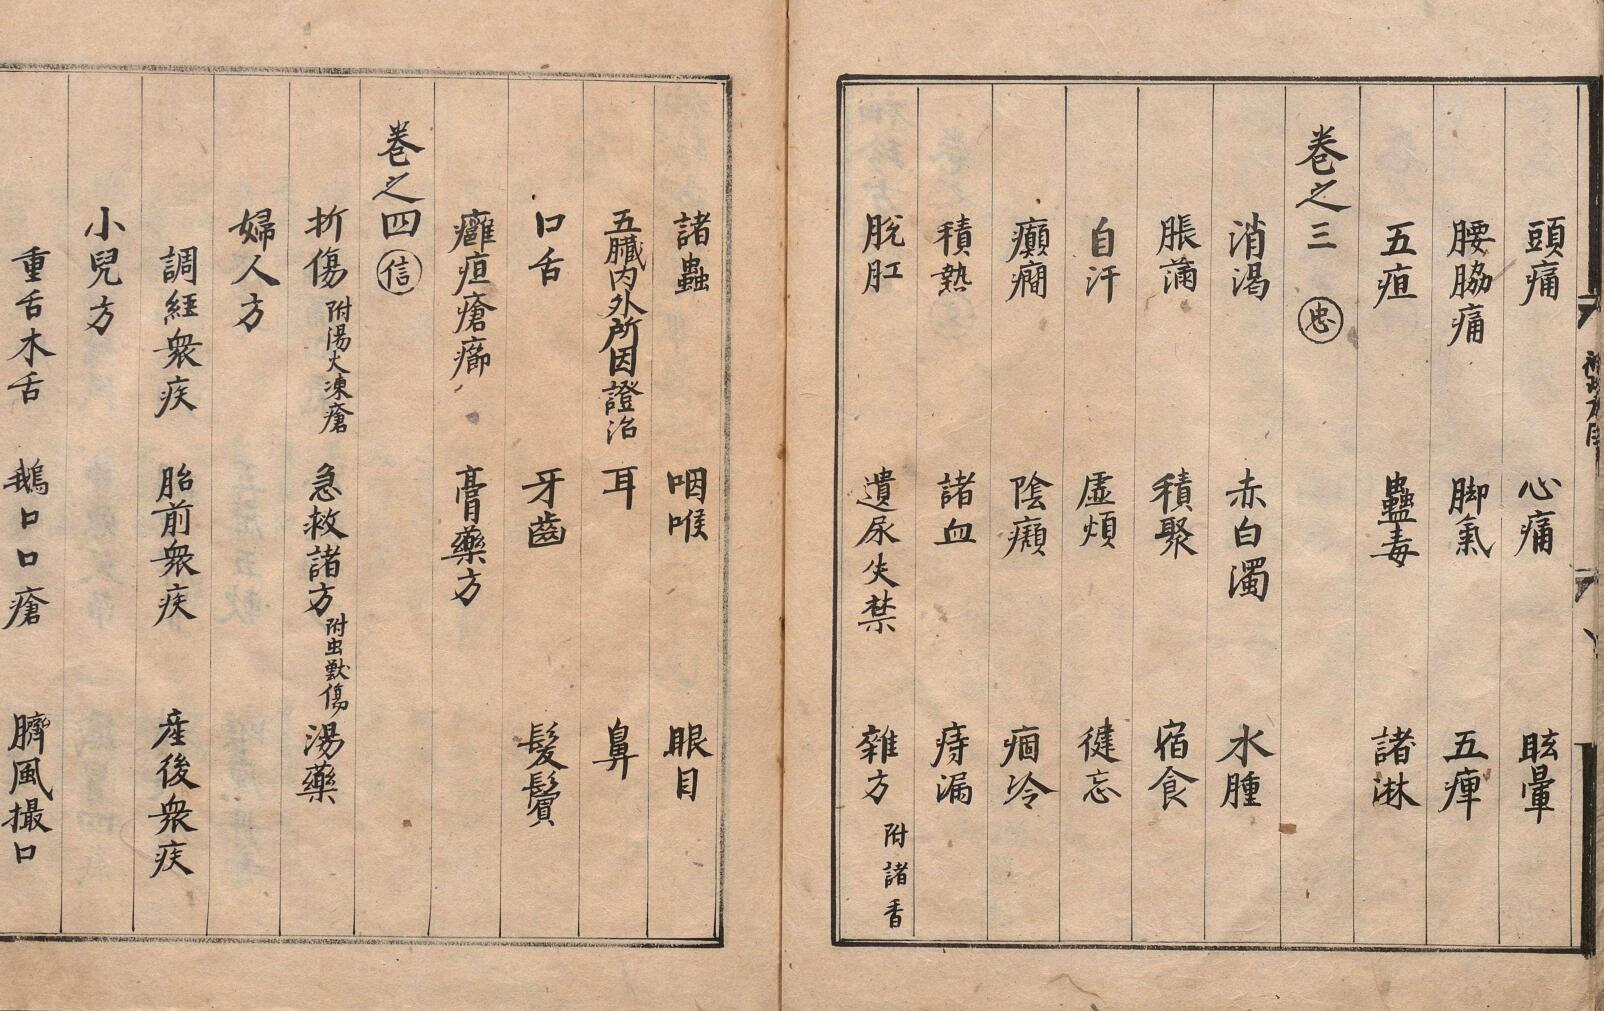 頭痛 心痛 眩暈
腰脇痛 脚氣 五痺
五疸 蠱毒 諸淋
卷之三 忠
消渴 赤白濁 水腫
脹滿 積聚 宿食
自汗 虛煩 健忘
癲癇 陰癩 痼冷
積熱 諸血 痔漏
脫肛 遺尿失禁 雜方 附諸香
諸蟲 咽喉 眼目
五臟內外所因證治 耳 鼻
口舌 牙齒 髮鬢
癰疽瘡癤 膏藥方
卷之四 信
折傷 附湯火凍瘡 急救諸方 附虫獸傷 湯藥
婦人方
調經衆疾 胎前衆疾 産後衆疾
小兒方
重舌木舌 鵝口口瘡 臍風撮口